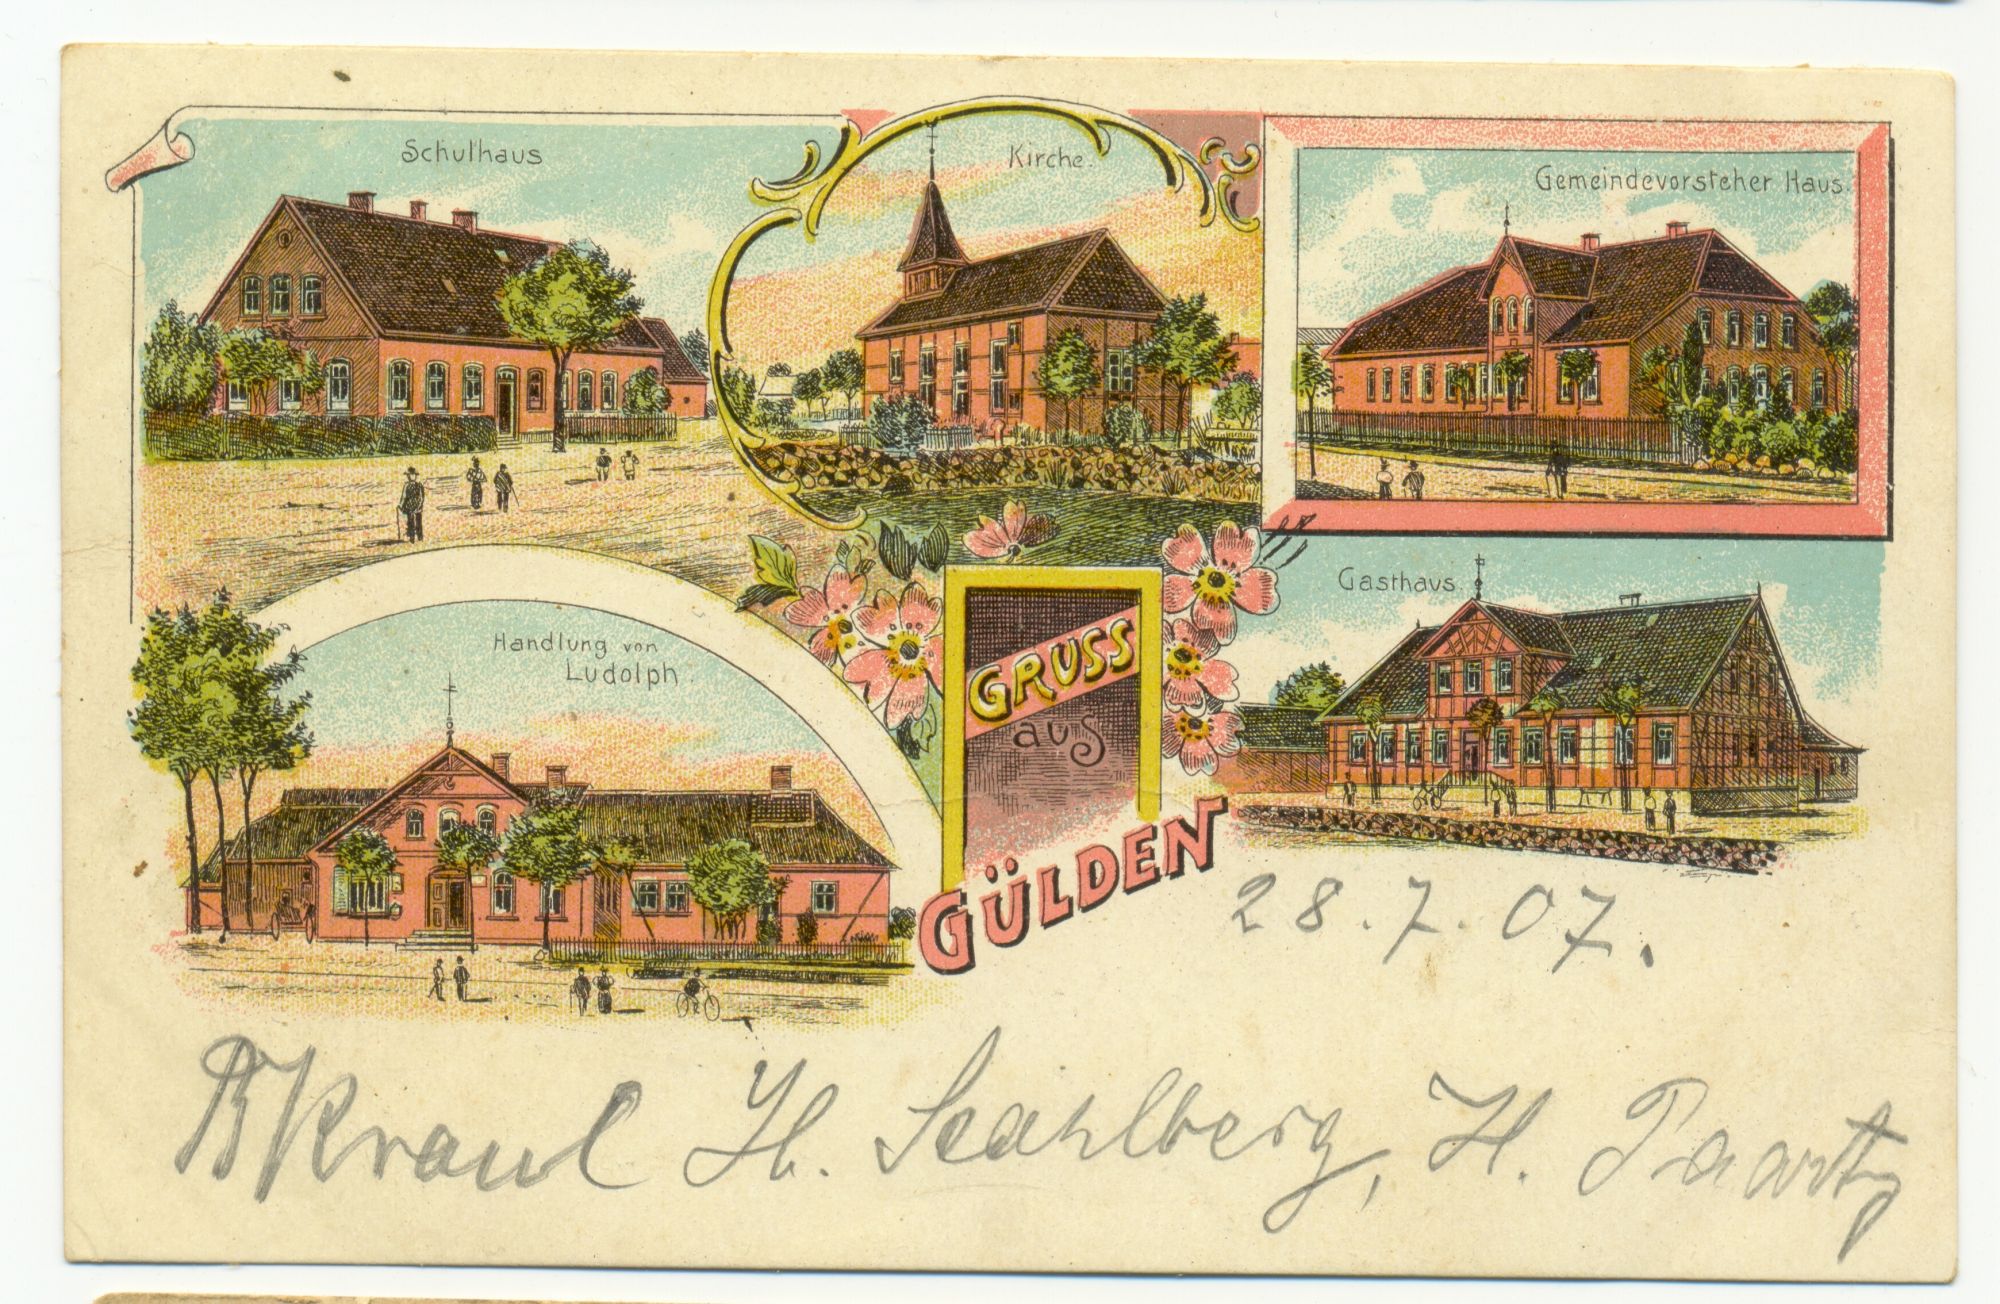 Schulhaus
Kirche.
Gemeindevorsteher Haus.
Handlung von
Ludolph.
Gasthaus.
GRUSS
aus
GÜLDEN
28.7.07.
H. Stahlberg, H. Paartz